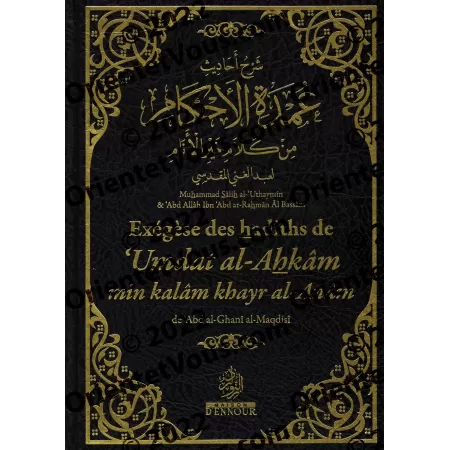 شرح أحاديث
عمدة الأحكام
من كلام خير الأنام
لعبد الغني المقدسي
Muhammad Sâlih al-'Uthaymîn
& 'Abd Allâh Ibn 'Abd ar-Rahmân Âl Bassâm
Exégèse des hadiths de
'Umdat al-Ahkâm
min kalâm khayr al-Anâm
de Abd al-Ghanî al-Maqdisî
MAISON
D'ENNOUR
© 2022
OrientetVous.com